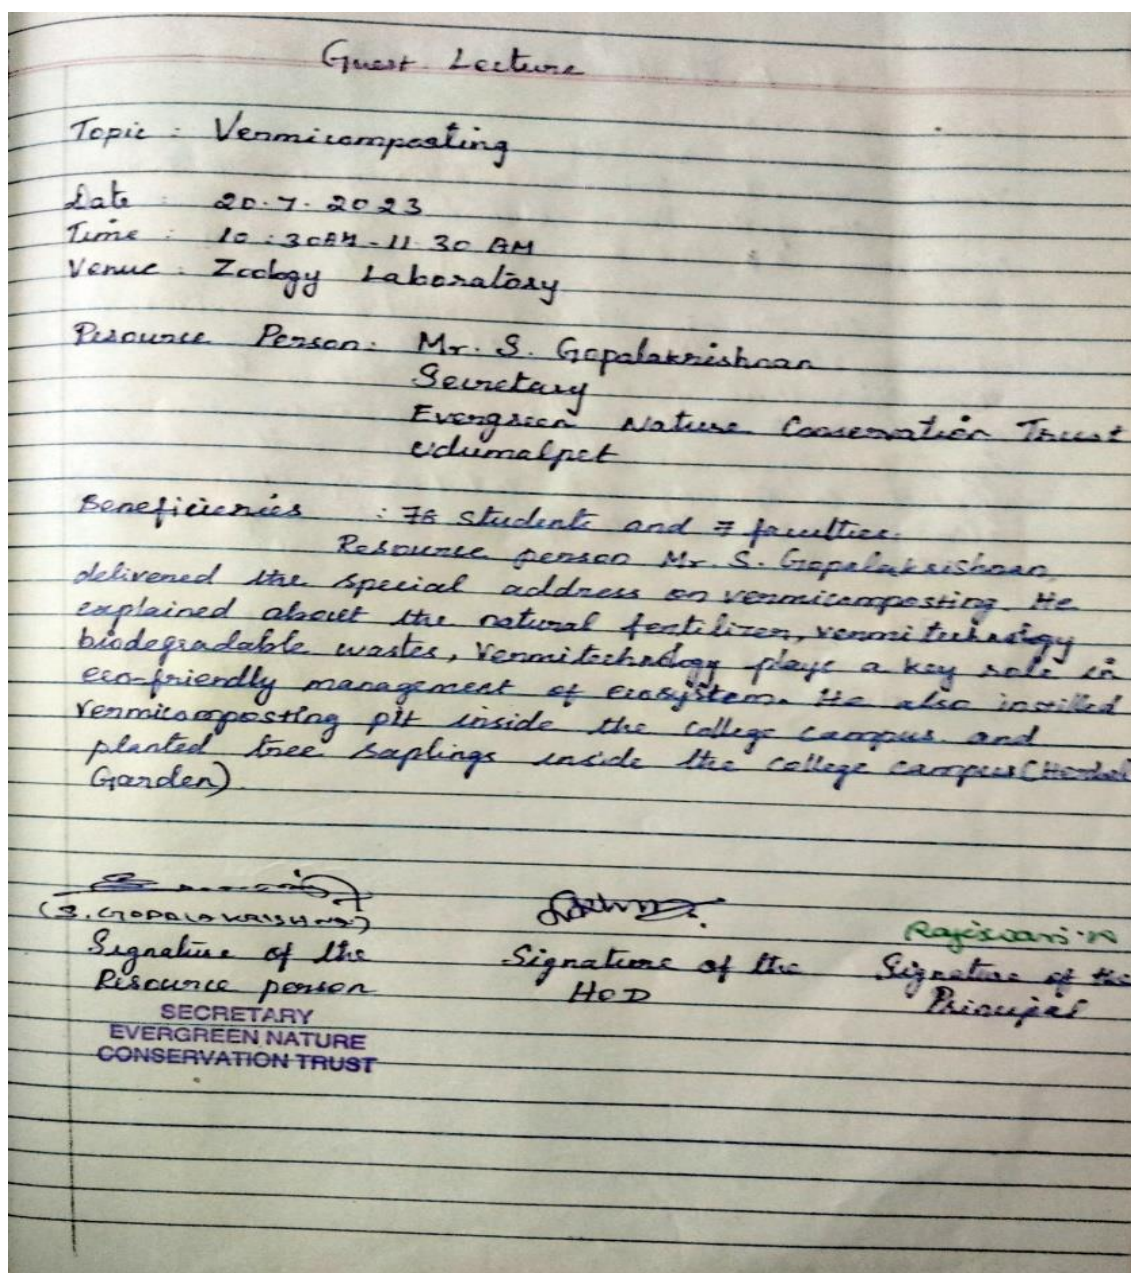 Guest Lecture
Topic : Vermicomposting
Date : 20.7.2023
Time : 10:30AM-11.30 AM
Venue : Zoology Laboratory
Resource Person: Mr. S. Gopalakrishnan
Secretary
Evergreen Nature Conservation Trust
Udumalpet
Beneficiaries : students and 7 faculties.
Resource person Mr. S. Gopalakrishnan
delivered the special address on vermicomposting. He
explained about the natural fertilizer, vermitechnology
biodegradable wastes, Vermitechnology plays a key role in
eco-friendly management of ecosystem. He also instilled
vermicomposting pit inside the college campus and
planted tree saplings inside the college campus (Herbal
Garden).
(S. GOPALAKRISHNAN)
Rajeswari.N
Signature of the Signature of the Signature of the
Resource person HOD Principal
SECRETARY
EVERGREEN NATURE
CONSERVATION TRUST